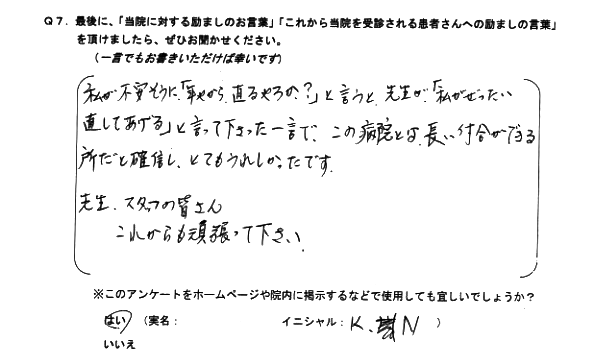 Q7. 最後に、「当院に対する励ましのお言葉」「これから当院を受診される患者さんへの励ましの言葉」
を頂けましたら、ぜひお聞かせください。
(一言でもお書きいただけば幸いです)
私が不安そうに「年やから、直るやろか?」と言うと、先生が「私がぜったい
直してあげる」と言って下さった一言で、この病院とは、長い付合ができる
所だと確信し、とてもうれしかったです。
先生、スタッフの皆さん
これからも頑張って下さい
※このアンケートをホームページや院内に掲示するなどで使用しても宜しいでしょうか?
はい (実名: イニシャル: K. N )
いいえ